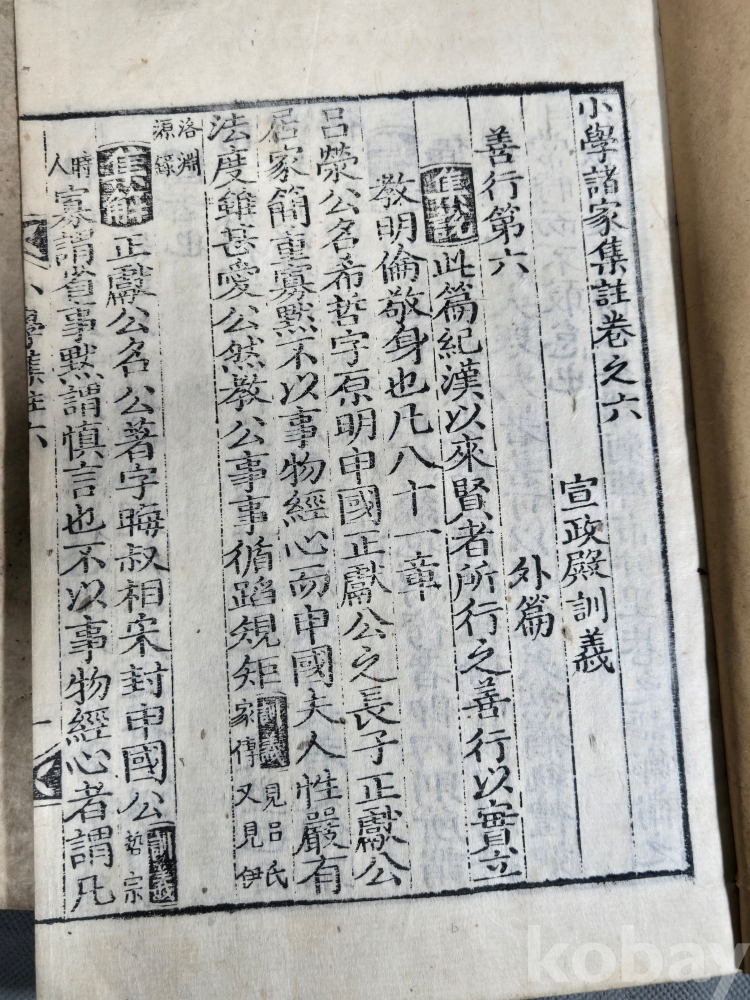 小學諸家集註卷之六
宣政殿訓義
善行第六
外篇
集說 此篇紀漢以來賢者所行之善行以實立
敎明倫敬身也凡八十一章
呂滎公名希哲字原明申國正獻公之長子正獻公
居家簡重寡默不以事物經心而申國夫人性嚴有
法度雖甚愛公然教公事事循蹈規矩 訓義 見呂氏
家傳又見伊
洛淵
源錄
集解 正獻公名公著字晦叔相宋封申國公 訓義 哲宗
時
人 寡謂省事默謂慎言也不以事物經心者謂凡
小學集註六
一
kobay